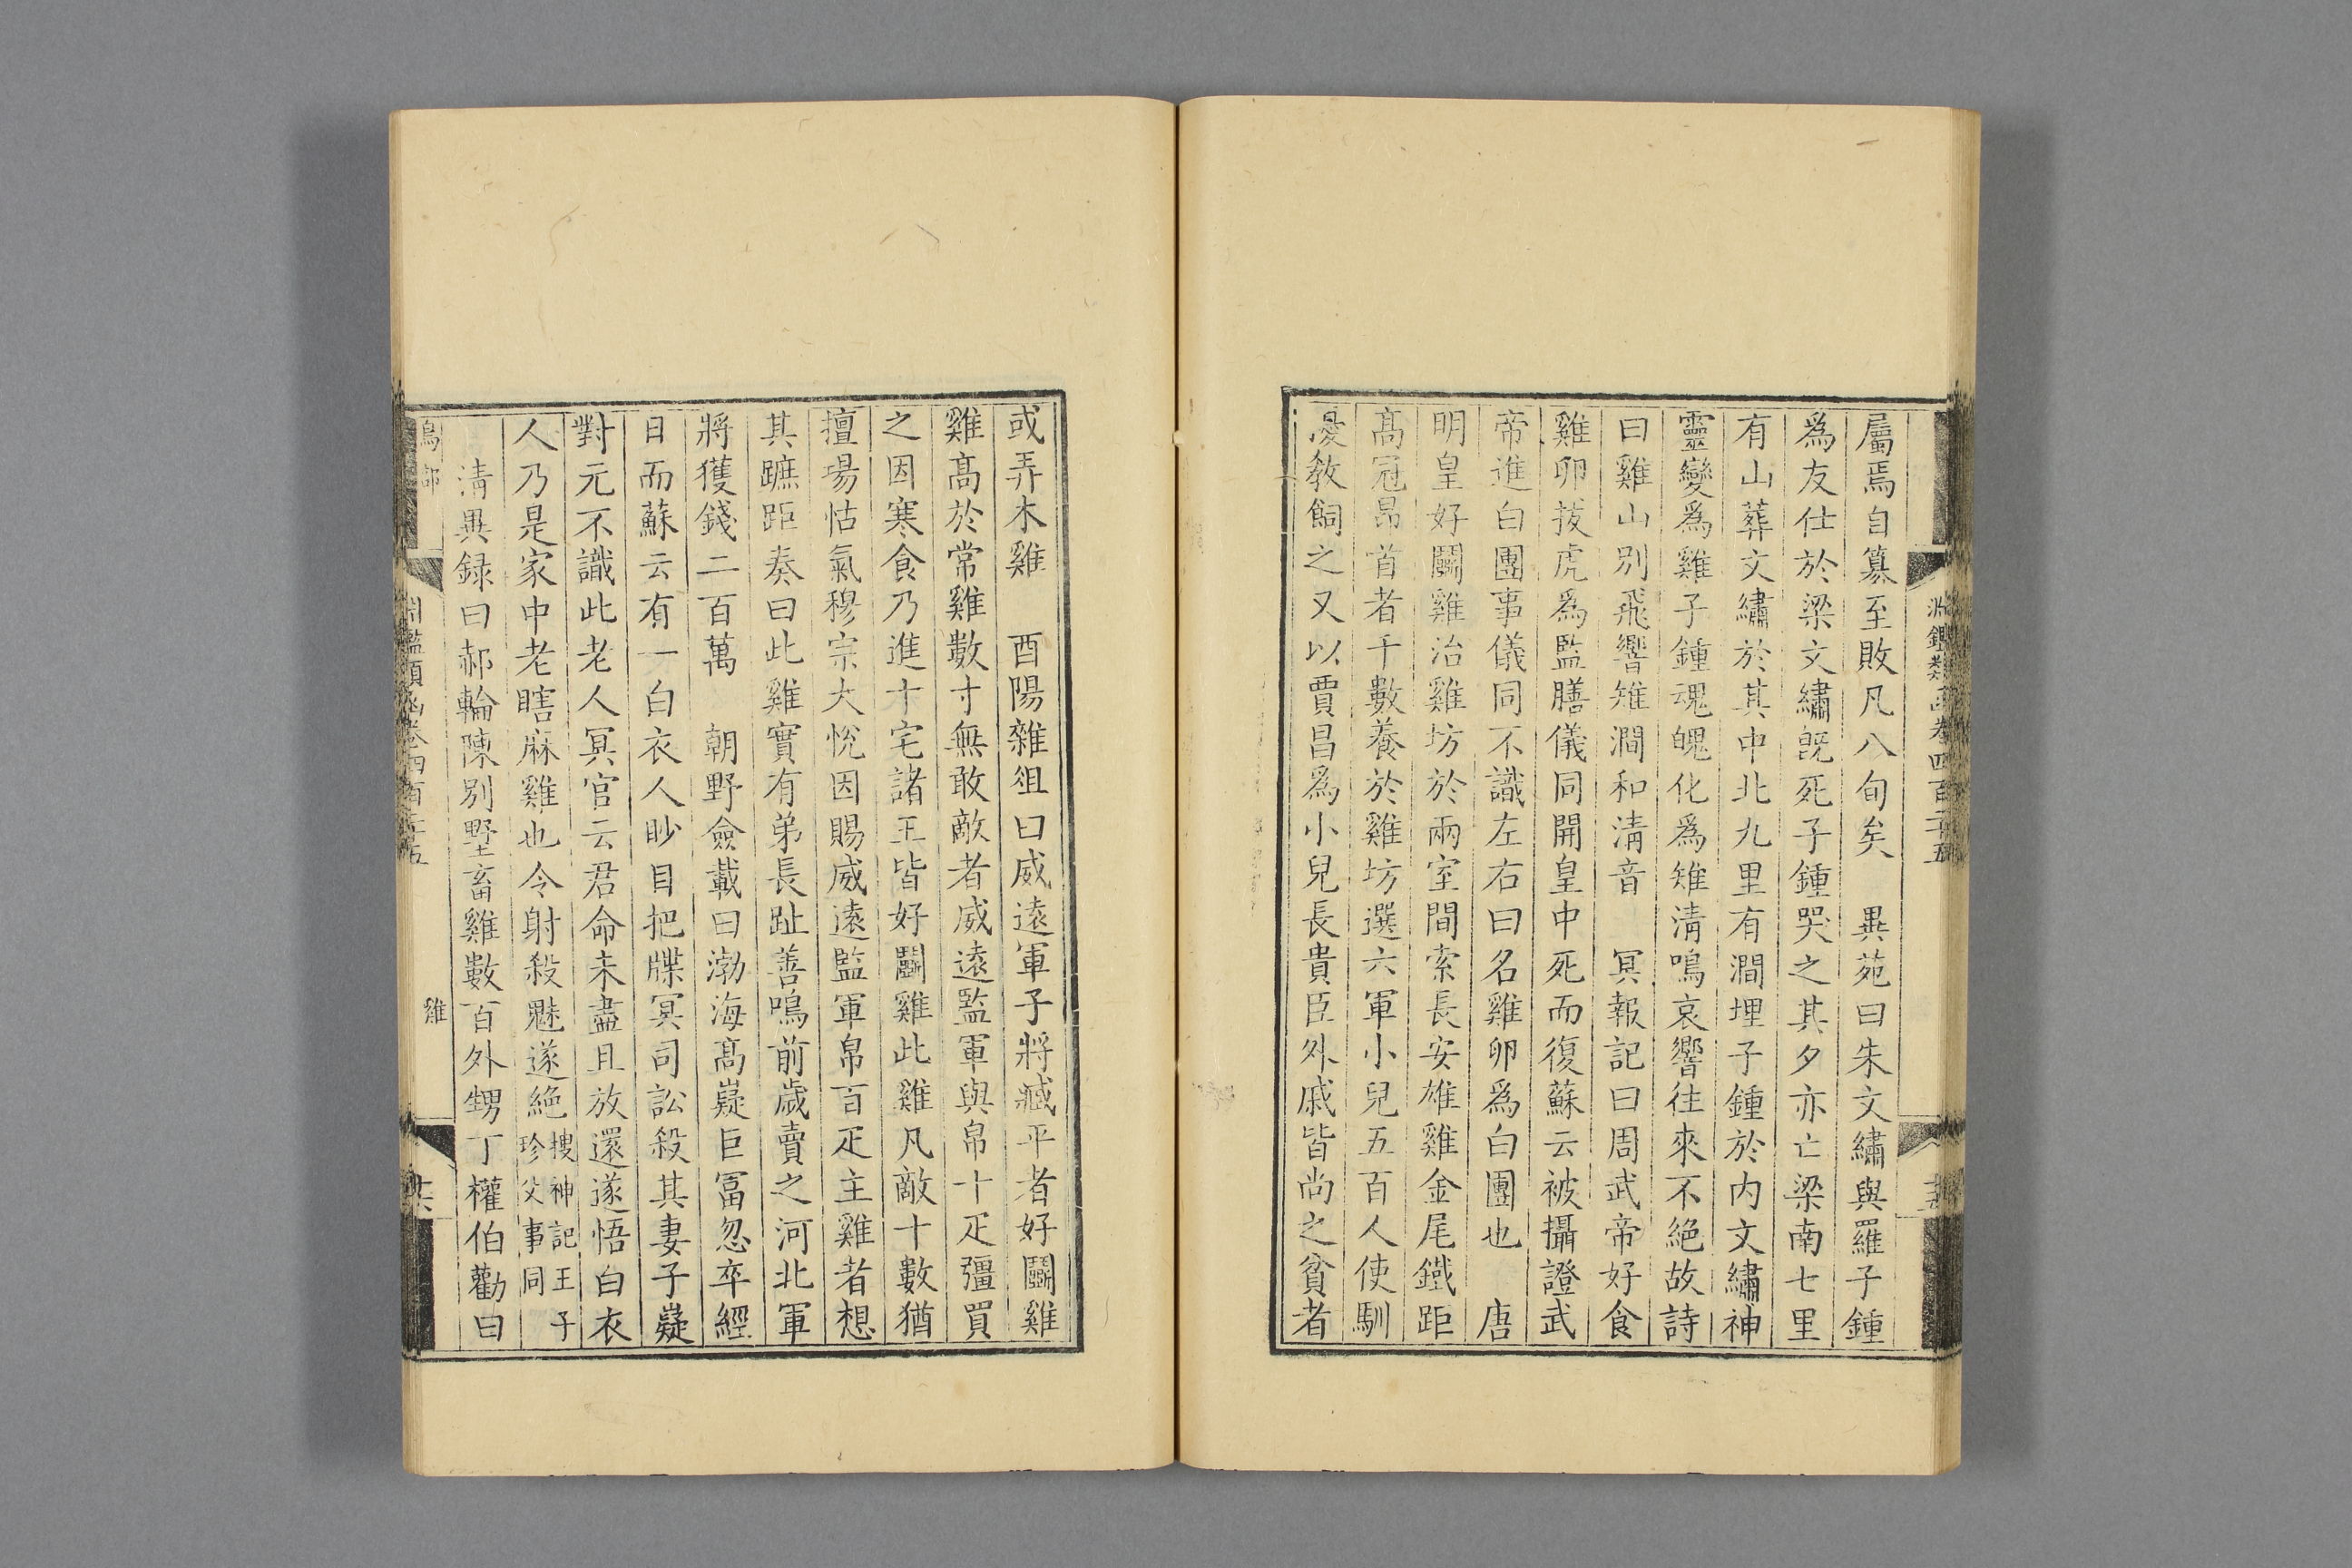 淵鑑類函卷四百二十五
屬焉自纂至敗凡八旬矣　異苑曰朱文繡與羅子鍾
爲友仕於梁文繡旣死子鍾哭之其夕亦亡梁南七里
有山葬文繡於其中北九里有澗埋子鍾於内文繡神
靈變爲雞子鍾魂魄化爲雉淸鳴哀響往來不絕故詩
曰雞山别飛響雉澗和淸音　冥報記曰周武帝好食
雞卵拔虎爲監膳儀同開皇中死而復蘇云被攝證武
帝進白團事儀同不識左右曰名雞卵爲白團也　唐
明皇好鬭雞治雞坊於兩宫間索長安雄雞金尾鐵距
髙冠昂首者千數養於雞坊選六軍小兒五百人使馴
擾敎飼之又以賈昌爲小兒長貴臣外戚皆尚之貧者
或弄木雞　酉陽雜俎曰威遠軍子將臧平者好鬭雞
雞髙於常雞數寸無敢敵者威遠監軍與帛十疋彊買
之因寒食乃進十宅諸王皆好鬭雞此雞凡敵十數猶
擅場怙氣穆宗大悅因賜威遠監軍帛百疋主雞者想
其蹠距奏曰此雞實有弟長趾善鳴前歲賣之河北軍
將獲錢二百萬　朝野僉載曰渤海髙嶷巨冨忽卒經
日而蘇云有一白衣人眇目把牒冥司訟殺其妻子嶷
對元不識此老人冥官云君命未盡且放還遂悟白衣
人乃是家中老瞎麻雞也令射殺魅遂絶搜神記王子
珍父事同
淸異録曰郝輪陳别墅畜雞數百外甥丁權伯勸曰
鳥部
淵鑑類函卷四百二十五
雞